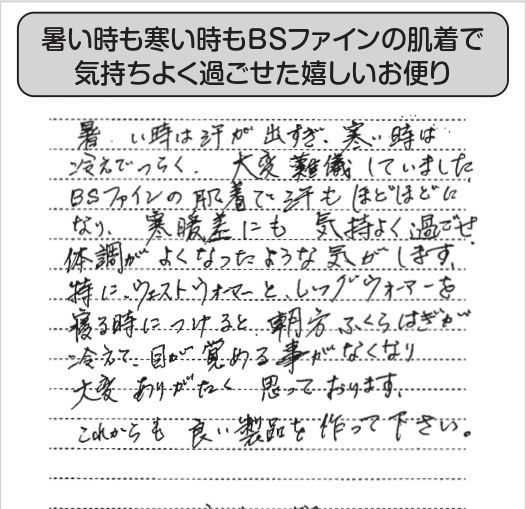 暑い時も寒い時もBSファインの肌着で
気持ちよく過ごせた嬉しいお便り
暑い時は汗が出すぎ、寒い時は
冷えてつらく、大変難儀していました
BSファインの肌着で汗もほどほどに
なり、寒暖差にも気持よく過ごせ
体調がよくなったような気がします。
特に、ウェストウォーマーと、レッグウォーマーを
寝る時につけると、朝方ふくらはぎが
冷えて、目が覚める事がなくなり
大変ありがたく思っております。
これからも良い製品を作って下さい。